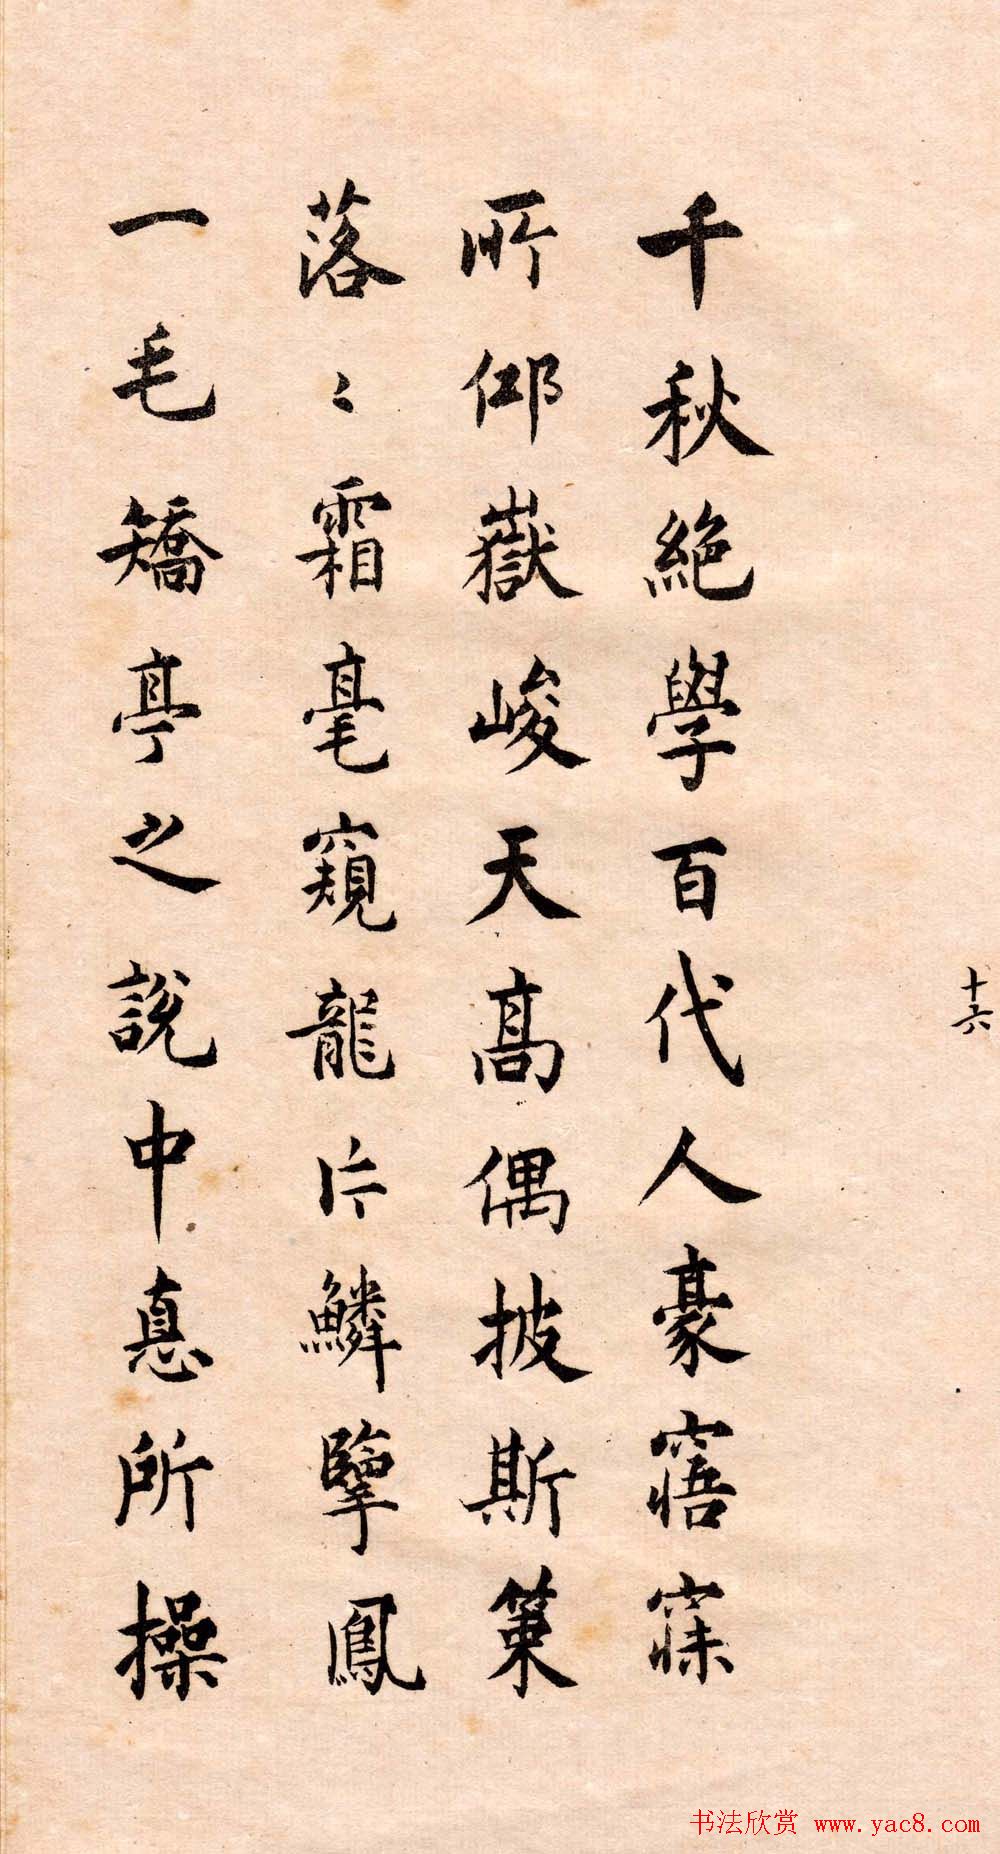 十六
千秋絶學百代人豪寤寐
所仰嶽峻天高偶披斯策
落〻霜毫窺龍片鱗擘鳳
一毛矯亭之說中悳所操
书法欣赏 www.yac8.com